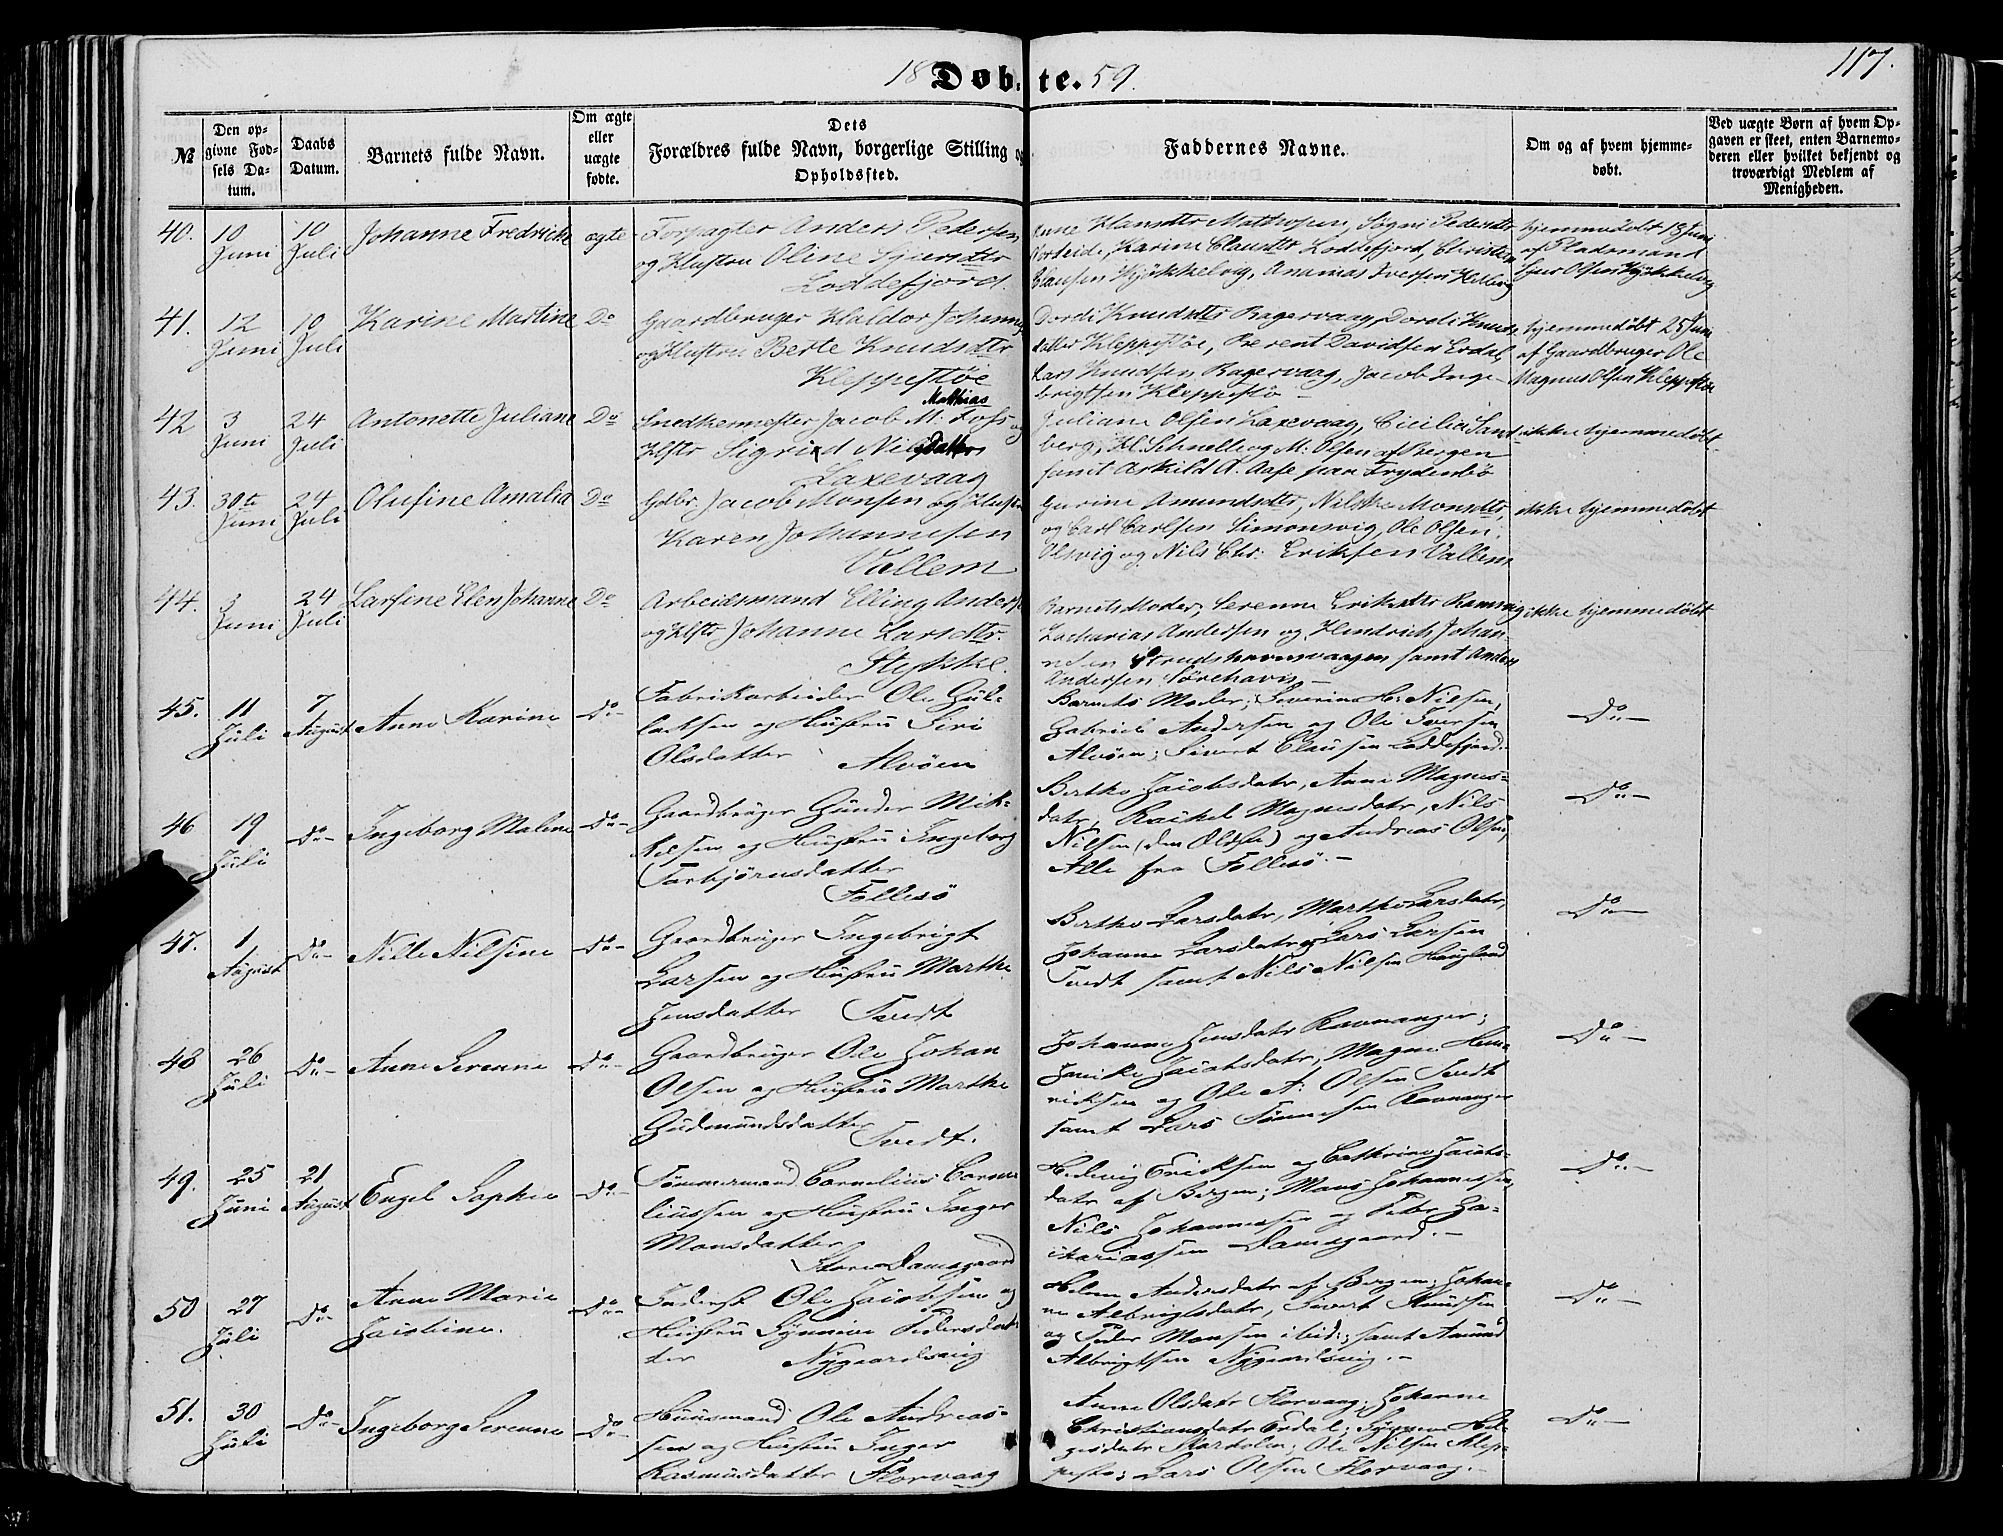 117.
18 Døbte. 59.
№
Den opgivne Fødsels Datum.
Daabs Datum.
Barnets fulde Navn.
Om ægte eller uægte fødte.
Dets Forældres fulde Navn, borgerlige Stilling og Opholdssted.
Faddernes Navne.
Om og af hvem hjemmedøbt.
Ved uægte Børn af hvem Opgaven er skeet, enten Barnemoderen eller hvilket bekjendt og troværdigt Medlem af Menigheden.
40. 10 Juni 10 Juli Johanne Fredricke ægte
Forpagter Anders Pedersen
og Hustru Oline Sjursdtr
Loddefjord.
Anne Hansdtr Mathopen, Sogni Pedersdtr
Karine Clausdtr Loddefjord, Christen
Clausen Kjøkkelvig, Ananias Iversen
hjemmedøbt 18 Juni
af Pladsmand
Sjur Olsen Kjøkkelvig
41. 12 Juni 10 Juli Karine Martine Do
Gaardbruger Haldor Johannes
og Hustru Berte Knudsdtr
Kleppestøe
Dordi Knudsdtr Ragervaag, Dordi Knuds
datter Kleppestøe, Berent Davidsen Erdal,
Lars Knudsen Ragervaag, Jacob Inge-
brigtsen Kleppestø -
hjemmedøbt 25 Juni
af Gaardbruger Ole
Magnus Olsen Kleppestøe
42 3 Juni 24 Juli Antonette Juliane Do
Mathias
Snedkermester Jacob M. Foss og
Hstr Sigrid Nilsdatter
Laxevaag
Juliane Olsen Laxevaag, Cicilia Sand
berg, H. Schnelle og M: Olsen af Bergen
samt Askild A. Aase paa Frydenbø
ikke hjemmedøbt
43. 30te Juni 24 Juli Olufine Amalia Do
Gdbr. Jacob Monsen og Hustru
Karen Johannesen
Vallem
Gurine Amundsdtr, Monsdtr,
og Carl Carlsen Simonsvig, Ole Olsen
Olsvig og Nils Chr: Eriksen Vallem
ikke hjemmedøbt
44. 3 Juni 24 Juli Larsine Elen Johanne Do
Arbeidsmand Elling Anders
og Hstr Johanne Larsdtr.
Stykke.
Barnets Moder, Serenne Eriksdtr
Zacharias Andersen og Hendrich Johan-
nesen Strudshavnsvaagen samt Anders
Andersen Sørehavn -
ikke hjemmedøbt
45. 11 Juli 7 August Anne Karine Do -
Fabrikarbeider Ole Gul-
laksen og Hustru Siri
Olsdatter Alvøen
Barnets Moder; Severine H: Nilsen,
Gabriel Andersen og Ole Iversen
Alvøen; Sivert Clausen Loddefjord.
Do -
46 19 Juli Do - Ingeborg Maline Do -
Gaardbruger Gunder Mik-
kelsen og Hustru Ingeborg
Torbjørnsdatter
Follesø
Berthe Jacobsdatr, Anne Magnes-
datr, Rachel Magnesdatr, Nils
Nilsen (den Ældste) og Andreas Olsen,
Alle fra Follesø. -
Do -
47. 1 August Do - Nille Nilsine Do -
Gaardbruger Ingebrigt
Larsen og Hustru Marthe
Jensdatter Tvedt
Berthe Larsdatr, Marthe Larsdatr,
Johanne Larsdatr og Lars Larsen
Tvedt samt Nils Nilsen Haugland
Do -
48 26 Juli Do - Anne Serenne Do -
Gaardbruger Ole Johan
Olsen og Hustru Marthe
Gudmundsdatter
Tvedt.
Johanne Jensdatr Ravnanger;
Jacobsdatr, Magne Hen-
riksen og Ole A: Olsen Tvedt
samt Lars Tønnesen Ravnanger
Do -
49. 25 Juni 21 August Engel Sophie Do -
Tømmermand Cornelius Corne
liussen og Hustru Inger
Monsdatter
Store Damsgaard
Hedvig Eriksen og Cathrine Jacobs-
datr af Bergen; Mons Johannessen,
Nils Johannesen og Peter Za-
kariassen Damsgaard. -
Do -
50 27 Juli Do - Anne Marie
Jacobine. Do -
Inderst Ole Jacobsen og
Hustru Synnive Pedersdat-
ter Nygaardsvig
Helene Andersdatr af Bergen; Johan-
ne Albrigtsdatr, Sivert Knudsen
og Peder Monsen ibid:; samt Amund
Albrigtsen Nygaardsvig. -
Do -
51. 30 Juli Do - Ingeborg Serenne Do -
Huusmand Ole Andreas-
sen og Hustru Inger
Rasmusdatter Florvaag
Anne Olsdatr Florvaag; Johanne
Christiansdatr Erdal; Hel-
gesdatr; Ole Nilsen Klep-
pestø; Lars Olsen Florvaag. -
Do -